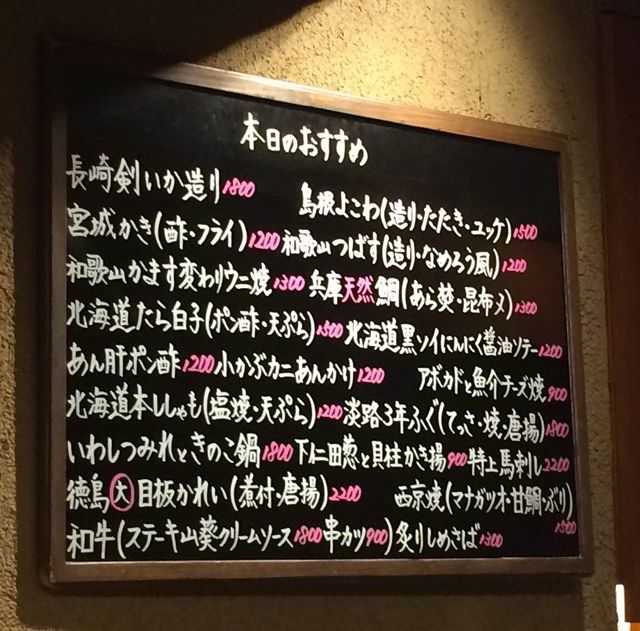 本日のおすすめ
長崎剣いか造り1800 島根よこわ(造り・たたき・ユッケ)1500
宮城かき(酢・フライ)1200 和歌山つばす(造り・なめろう風)1200
和歌山かます変わりウニ焼1300 兵庫天然鯛(あら焚・昆布〆)1300
北海道たら白子(ポン酢・天ぷら)1500 北海道黒ソイにんにく醤油ソテー1200
あん肝ポン酢1200 小かぶカニあんかけ1200 アボカドと魚介チーズ焼900
北海道本ししゃも(塩焼・天ぷら)1200 淡路3年ふぐ(てっさ・焼・唐揚)1800
いわしつみれときのこ鍋1800 下仁田葱と貝柱かき揚900 特上馬刺し2200
徳島大目板かれい(煮付・唐揚)2200 西京焼(マナガツオ・甘鯛・ぶり)1500
和牛(ステーキ山葵クリームソース1800 串カツ900) 炙りしめさば1300